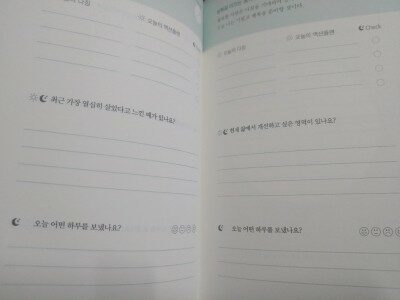 오늘의 다짐
오늘의 액션플랜
Check
최근 가장 열심히 살았다고 느낀 때가 있나요?
오늘 어떤 하루를 보냈나요?
오늘의 다짐
오늘의 액션플랜
Check
현재 삶에서 개선하고 싶은 영역이 있나요?
오늘 어떤 하루를 보냈나요?